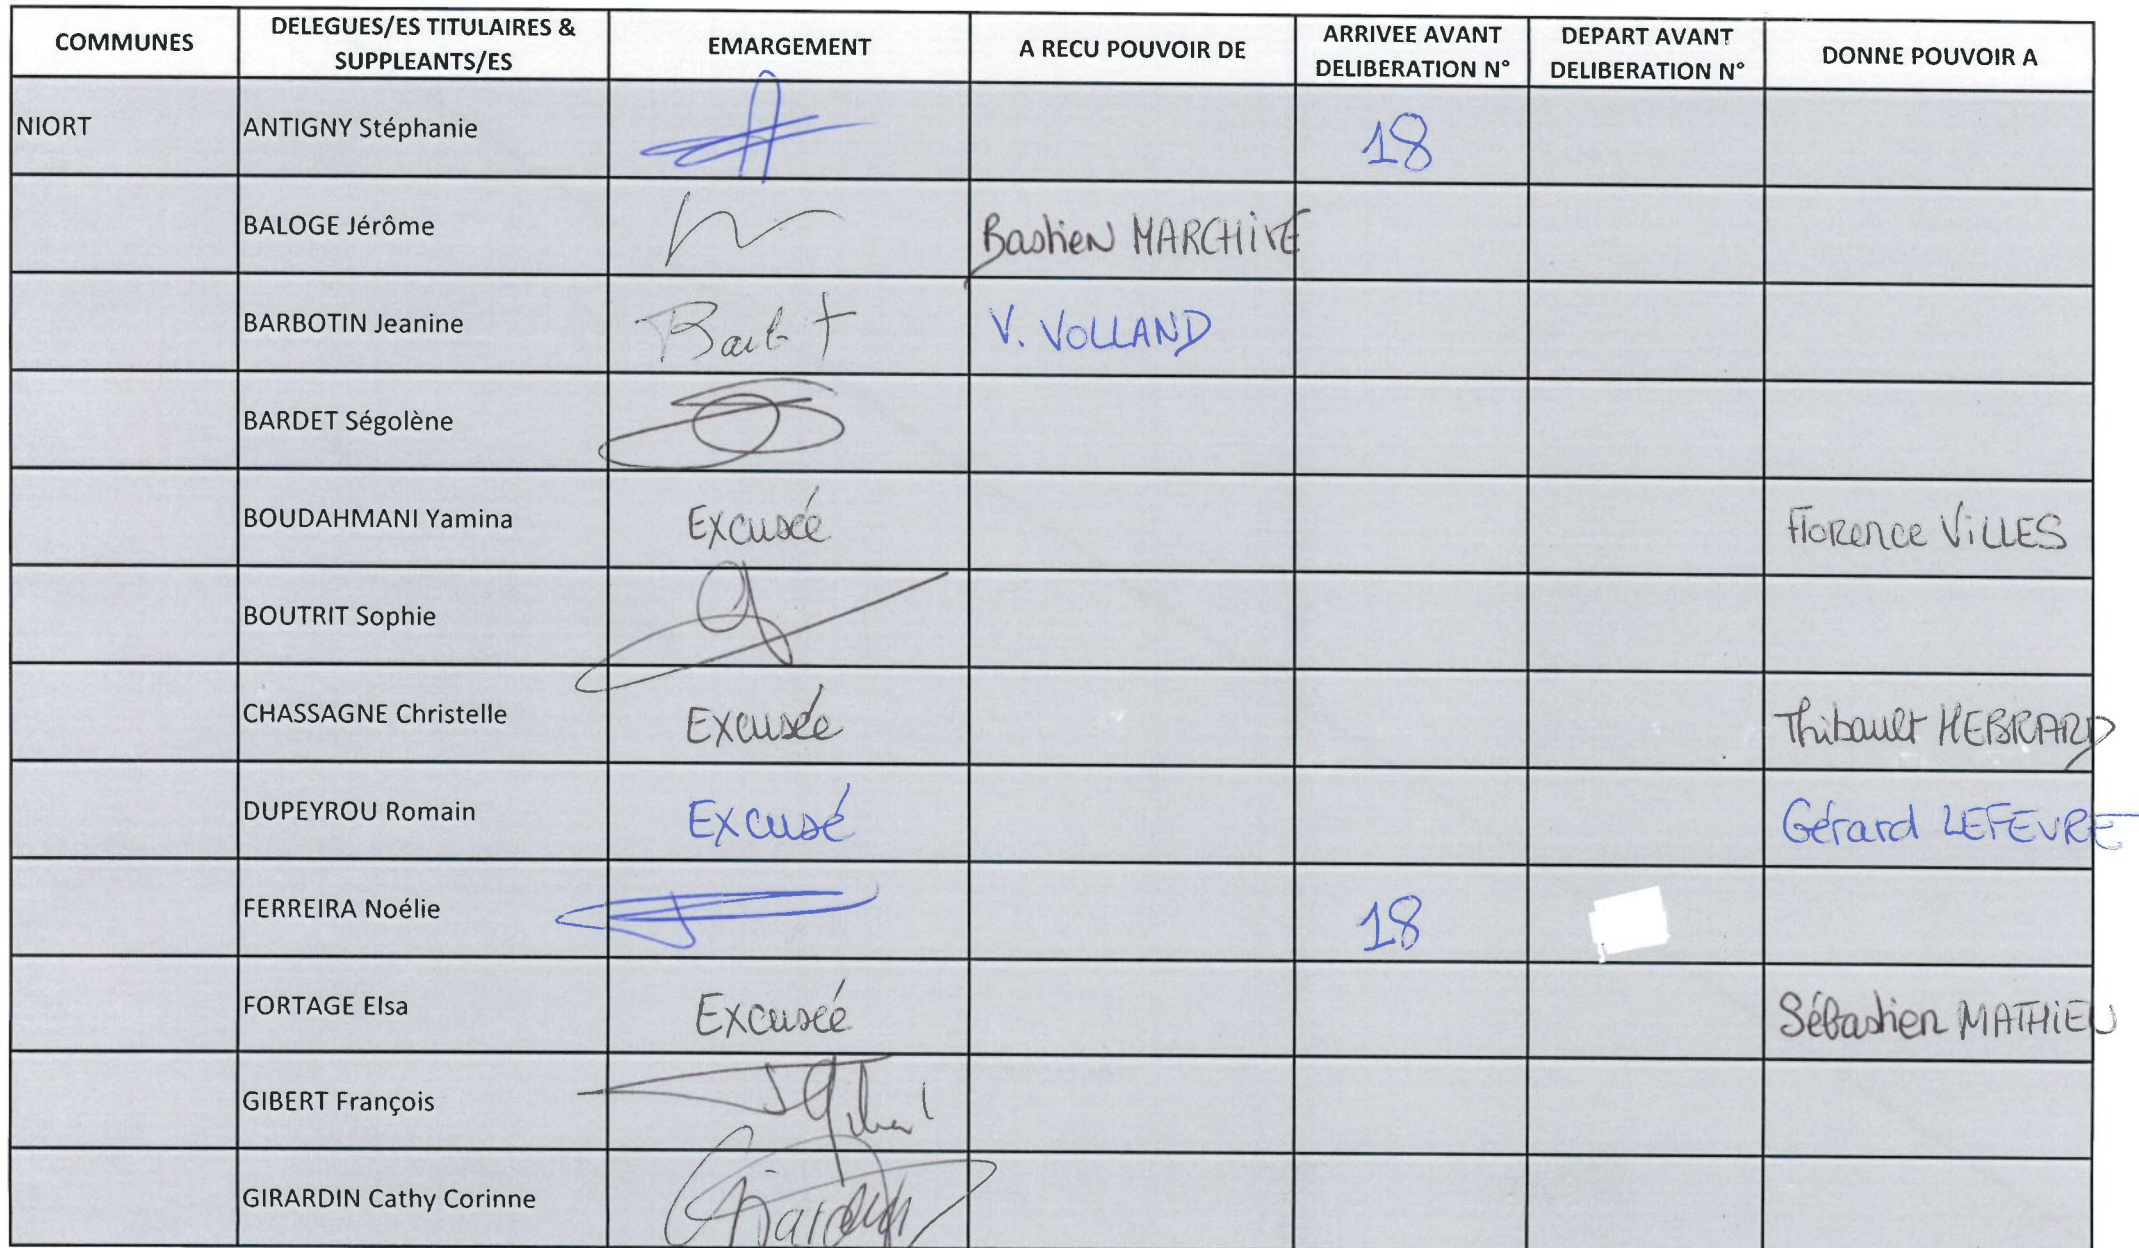 COMMUNES DELEGUES/ES TITULAIRES & SUPPLEANTS/ES EMARGEMENT A RECU POUVOIR DE ARRIVEE AVANT DELIBERATION N° DEPART AVANT DELIBERATION N° DONNE POUVOIR A
NIORT ANTIGNY Stéphanie 18
BALOGE Jérôme Bastien MARCHIVE
BARBOTIN Jeanine V. VOLLAND
BARDET Ségolène
BOUDAHMANI Yamina Excusée Florence VILLES
BOUTRIT Sophie
CHASSAGNE Christelle Excusée Thibault HEBRARD
DUPEYROU Romain Excusé Gérard LEFEVRE
FERREIRA Noélie 18
FORTAGE Elsa Excusée Sébastien MATHIEU
GIBERT François
GIRARDIN Cathy Corinne